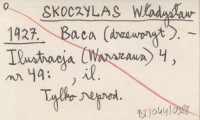 SKOCZYLAS Władysław
1927. Baca (drzeworyt). —
Ilustracja (Warszawa) 4,
nr 49: , il.
Tylko reprod.